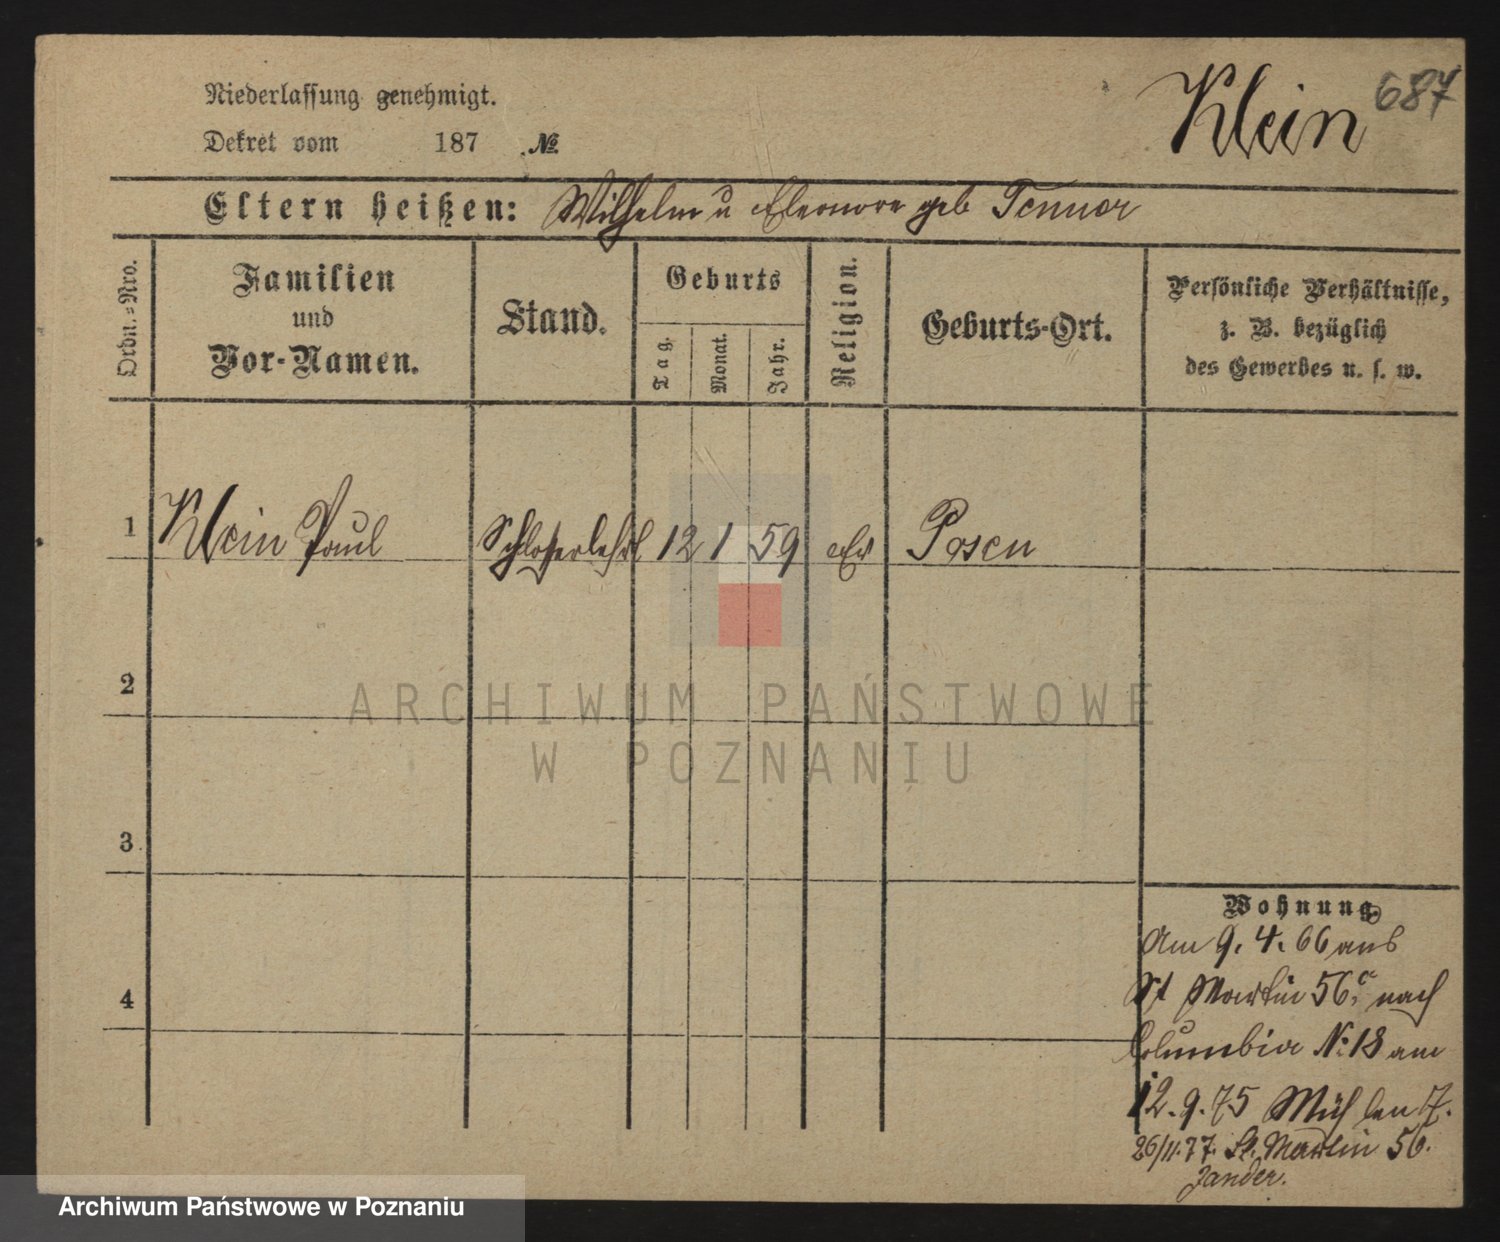 Niederlassung genehmigt.
Dekret vom 187 . №.
Klein 687
Eltern heißen: Wilhelm u Eleonore geb Tenner
Ordn.-Nro.
Familien
und
Vor-Namen.
Stand.
Geburts
Tag.
Monat.
Jahr.
Religion.
Geburts-Ort.
Persönliche Verhältnisse,
z. B. bezüglich
des Gewerbes u. s. w.
1 Klein Paul Schlosserlehrl 12 1 59 Ev Posen
2
3
4
Wohnung
Am 9. 4. 66 aus
St Martin 56 nach
Columbia N: 18 am
12. 9. 75 Mühlen 7.
26/11.77. St. Martin 56.
Zander.
ARCHIWUM PAŃSTWOWE
W POZNANIU
Archiwum Państwowe w Poznaniu